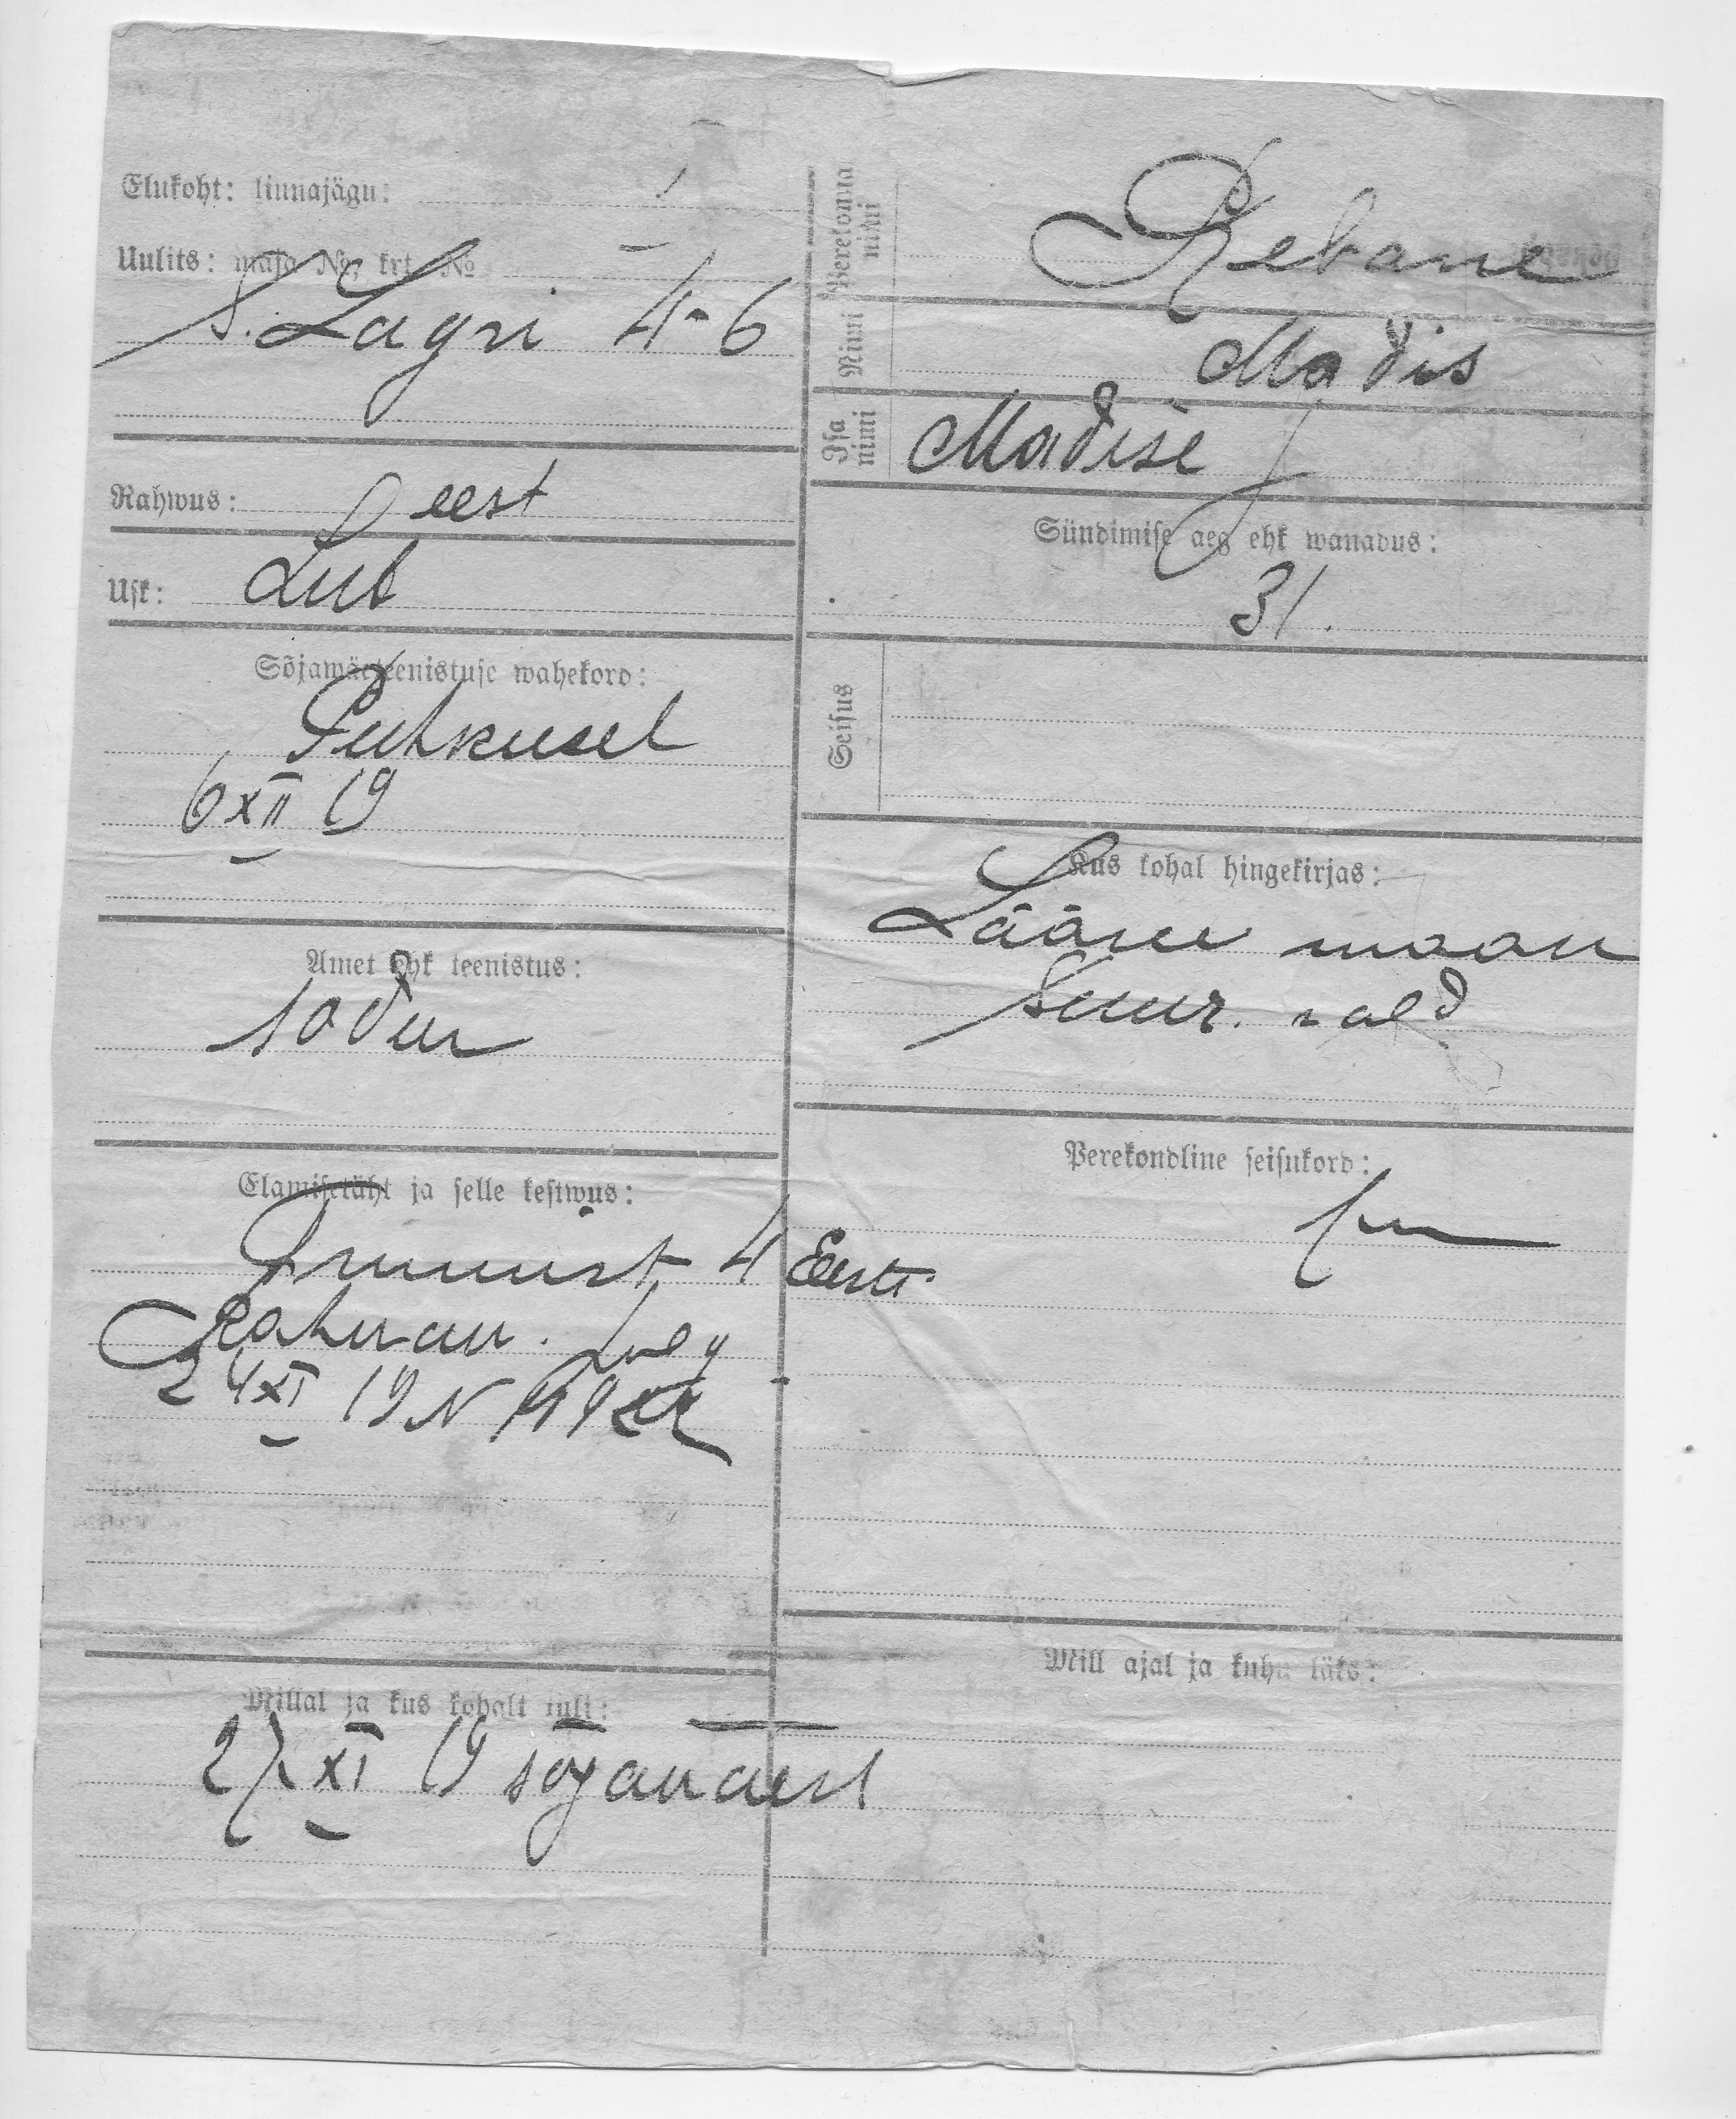 Elukoht: linnajägu:
Uulits: maja № krt. №
S. Lagri 4-6
Rahwus: eest
Usk: Lut
Sõjawäeteenistuse wahekord:
Puhkusel
6 XII 19
Amet ehk teenistus:
sodur
Elamisetäht ja selle kestwus:
4 Eesti
Rahwa
24 XI 19 N
Millal ja kus kohalt tuli:
27 XI 19 sõjawaest
Perekonna nimi
Rebane
Nimi
Madis
Isa nimi
Madise
Sündimise aeg ehk wanadus:
31.
Seisus
Kus kohal hingekirjas:
Lääne maa
wald
Perekondline seisukord:
Mill ajal ja kuhu läks: